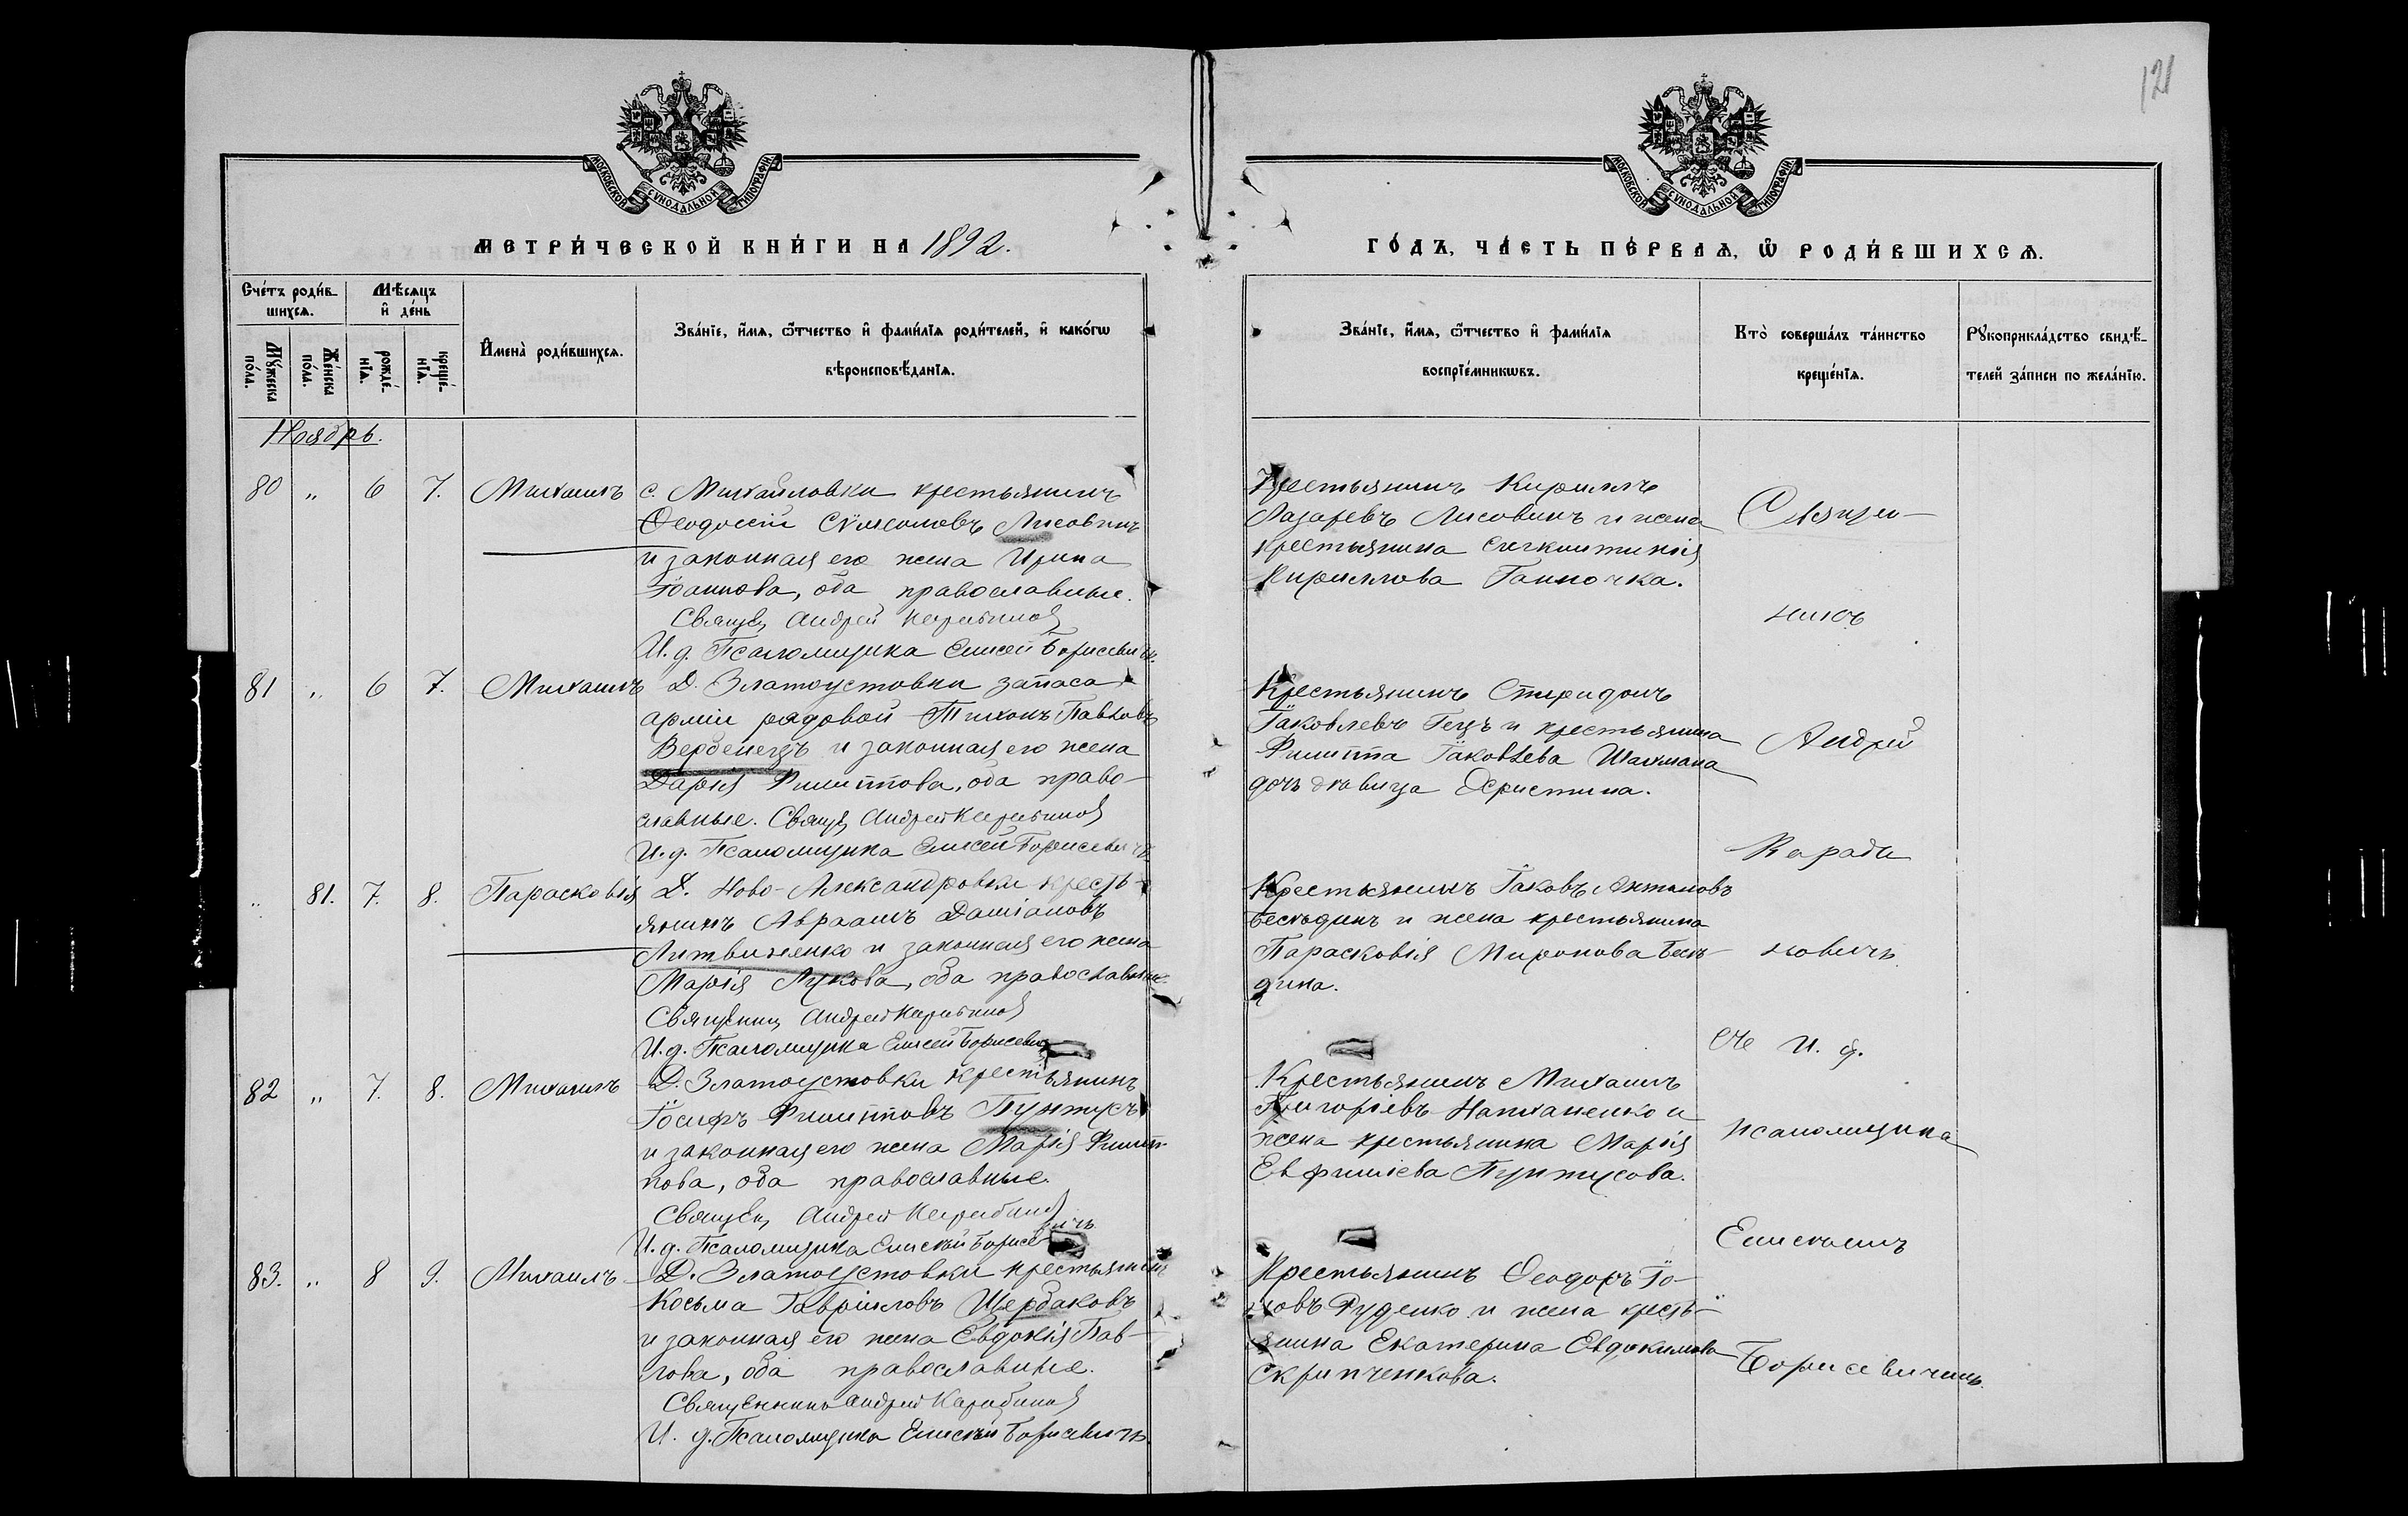 121
МОСКОВСКОЙ СѴНОДАЛЬНОЙ ТИПОГРАФІИ
МОСКОВСКОЙ СѴНОДАЛЬНОЙ ТИПОГРАФІИ
МЕТРИ́ЧЕСКОЙ КНИ́ГИ НА 1892.
ГО́ДЪ, ЧА́СТЬ ПЕ́РВАѦ, Ѽ РОДИ́ВШИХСѦ.
Сче́тъ роди́в-
шихсѧ.
Мѣ́сѧцъ
и҆ де́нь
Мꙋ́жеска
по́ла.
Же́нска
по́ла.
рожде́-
нїѧ.
креще́-
нїѧ.
И҆мена̀ роди́вшихсѧ.
Зва́нїе, и҆́мѧ, ѻ҆́тчество и҆ фами́лїѧ роди́телей, и҆ како́гѡ
вѣроисповѣ́данїѧ.
Зва́нїе, и҆́мѧ, ѻ҆́тчество и҆ фами́лїѧ
воспрїе́мникѡвъ.
Кто̀ соверша́лъ та́инство
креще́нїѧ.
Рꙋкоприкла́дство свидѣ́-
телей за́писи по жела́нїю.
Ноябрь.
80 „ 6 7. Михаилъ с. Михайловки крестьянинъ
Ѳеодосій Сѵмеоновъ Лисовинъ
и законная его жена Ирина
Іоаннова, оба православные.
Священ Андрей Карабинов
И. д. Псаломщика Елисей Борисевичъ.
Крестьянинъ Кириллъ
Лазаревъ Лисовинъ и жена
крестьянина
Кириллова Ганночка.
81 „ 6 7. Михаилъ Д. Златоустовки запаса
арміи рядовой Тихонъ Павловъ
Вербенецъ и законная его жена
Дарія Филиппова, оба право-
славные. Священ Андрей Карабинов
И. д. Псаломщика Елисей Борисевичъ
Крестьянинъ Спиридонъ
Іаковлевъ Гецъ и крестьянина
Филиппа Іаковлева Шахмана
дочь дѣвица Христина.
„ 81. 7. 8. Парасковія Д. Ново-Александровки кресть-
янинъ Авраамъ Даміановъ
Литвиненко и законная его жена
Марія Лукова, оба православные.
Священник Андрей Карабинов
И. д. Псаломщика Елисей Борисевич
Крестьянинъ Іаковъ Антоновъ
Бесѣдинъ и жена крестьянина
Парасковія Миронова Бесѣ-
дина.
82 „ 7. 8. Михаилъ Д. Златоустовки крестьянинъ
Іосифъ Филипповъ Пунтусъ
и законная его жена Марія Филип-
пова, оба православные.
Священ Андрей Карабинов
И. д. Псаломщика Елисѣй Борисевичъ
Крестьянинъ Михаилъ
Григоріевъ и
жена крестьянина Марія
Евфиміева Пунтусова.
83. „ 8 9. Михаилъ Д. Златоустовки крестьянинъ
Косьма Гавріиловъ Щербаковъ
и законная его жена Евдокія Пав-
лова, оба православные.
Священникъ Андрей Карабинов
И. д. Псаломщика Елисѣй Борисевичъ.
Крестьянинъ Ѳеодоръ
Руденко и жена кресть-
янина Екатерина Евдокимова
Скрипченкова.
Священ-
никъ
Андрей
Караба
новичъ
съ И. д.
псаломщика
Елисѣемъ
Борисевичемъ.